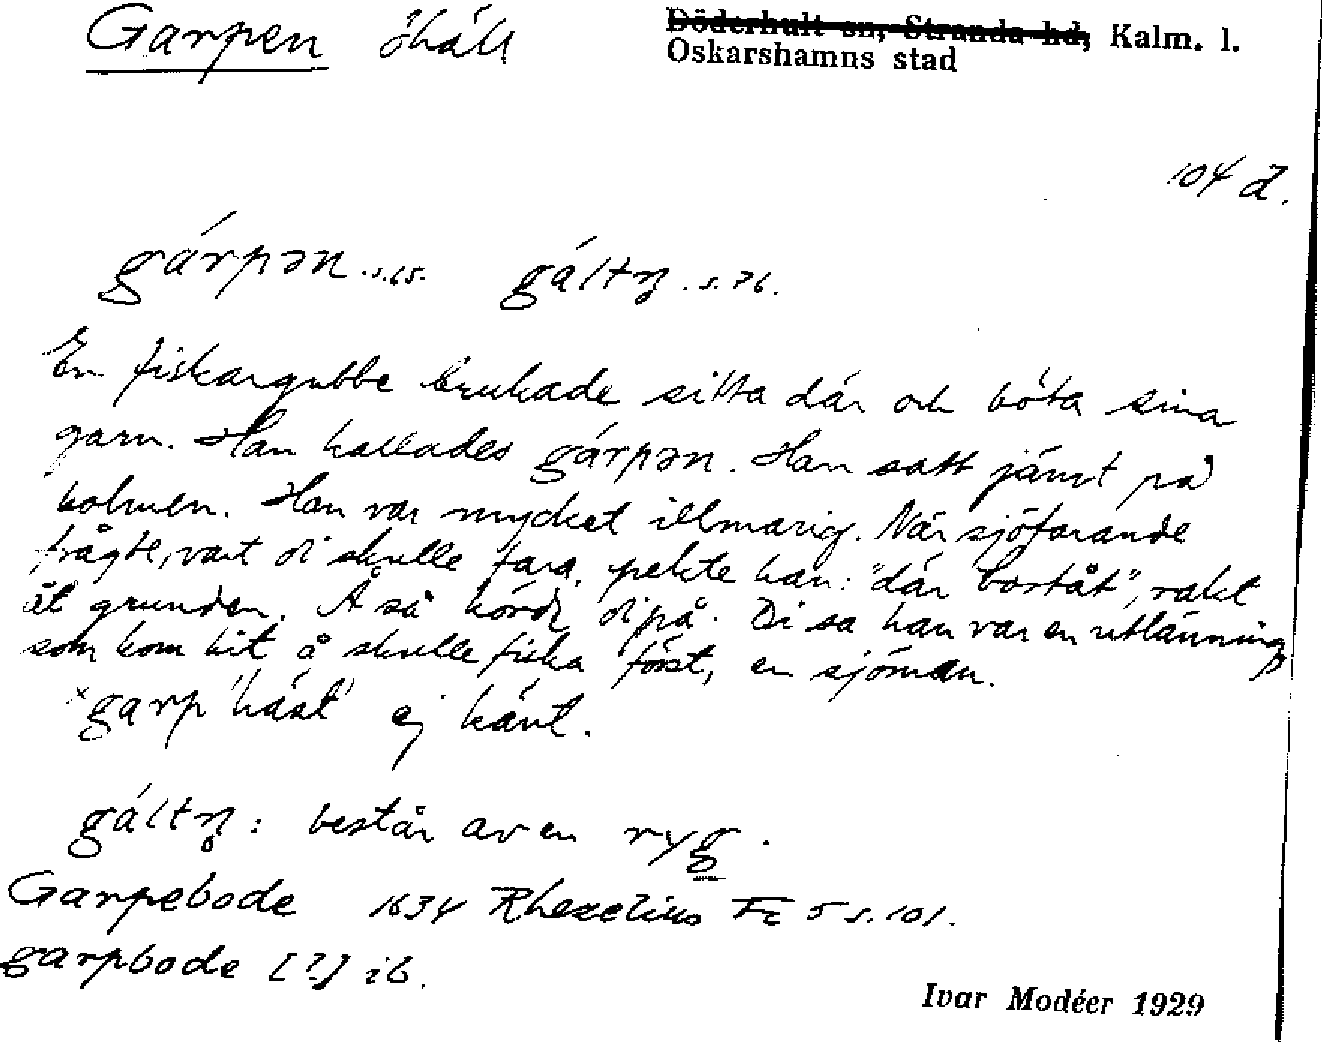 Garpen
~~Döderhult sn, Stranda hd,~~ Kalm. l.
Oskarshamns stad
104 d.
gárpən . s. 65. gáltn̥ . s. 76.
En fiskargubbe brukade sitta där och böta sina
garn. Han kallades gárpən. Han satt jämt på
holmen. Han var mycket illmarig. När sjöfarande
frågte, vart di skulle fara, pekte han: "där bortåt", rakt
åt grunden. Å så körde di på. Di sa han var en utlänning
som kom hit å skulle fiska först, en sjöman.
×garp 'häst' ej känt.
gáltn̥ : består av en ryg.
Garpebode 1634 Rhezelius Fc 5 s. 101.
garpbode [?] ib.
Ivar Modéer 1929